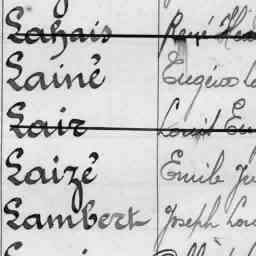 Lahais René
Lainé Eugène
Lair Louis
Laizé Emile
Lambert Joseph Lou